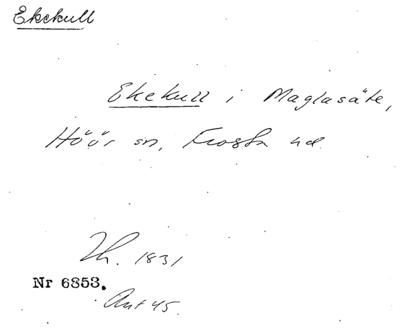 Ekekull
Ekekull i Maglasäte,
Höör sn, Frosta hd.
Th. 1831
Nr 6853.
Ant 45.